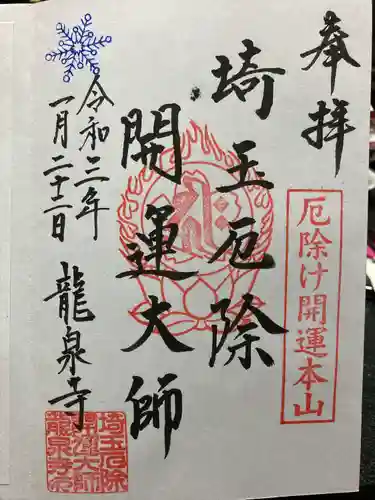 奉拝
厄除け開運本山
埼玉厄除
開運大師
令和三年
一月二十二日
龍泉寺
埼玉厄除
開運大師
龍泉寺印